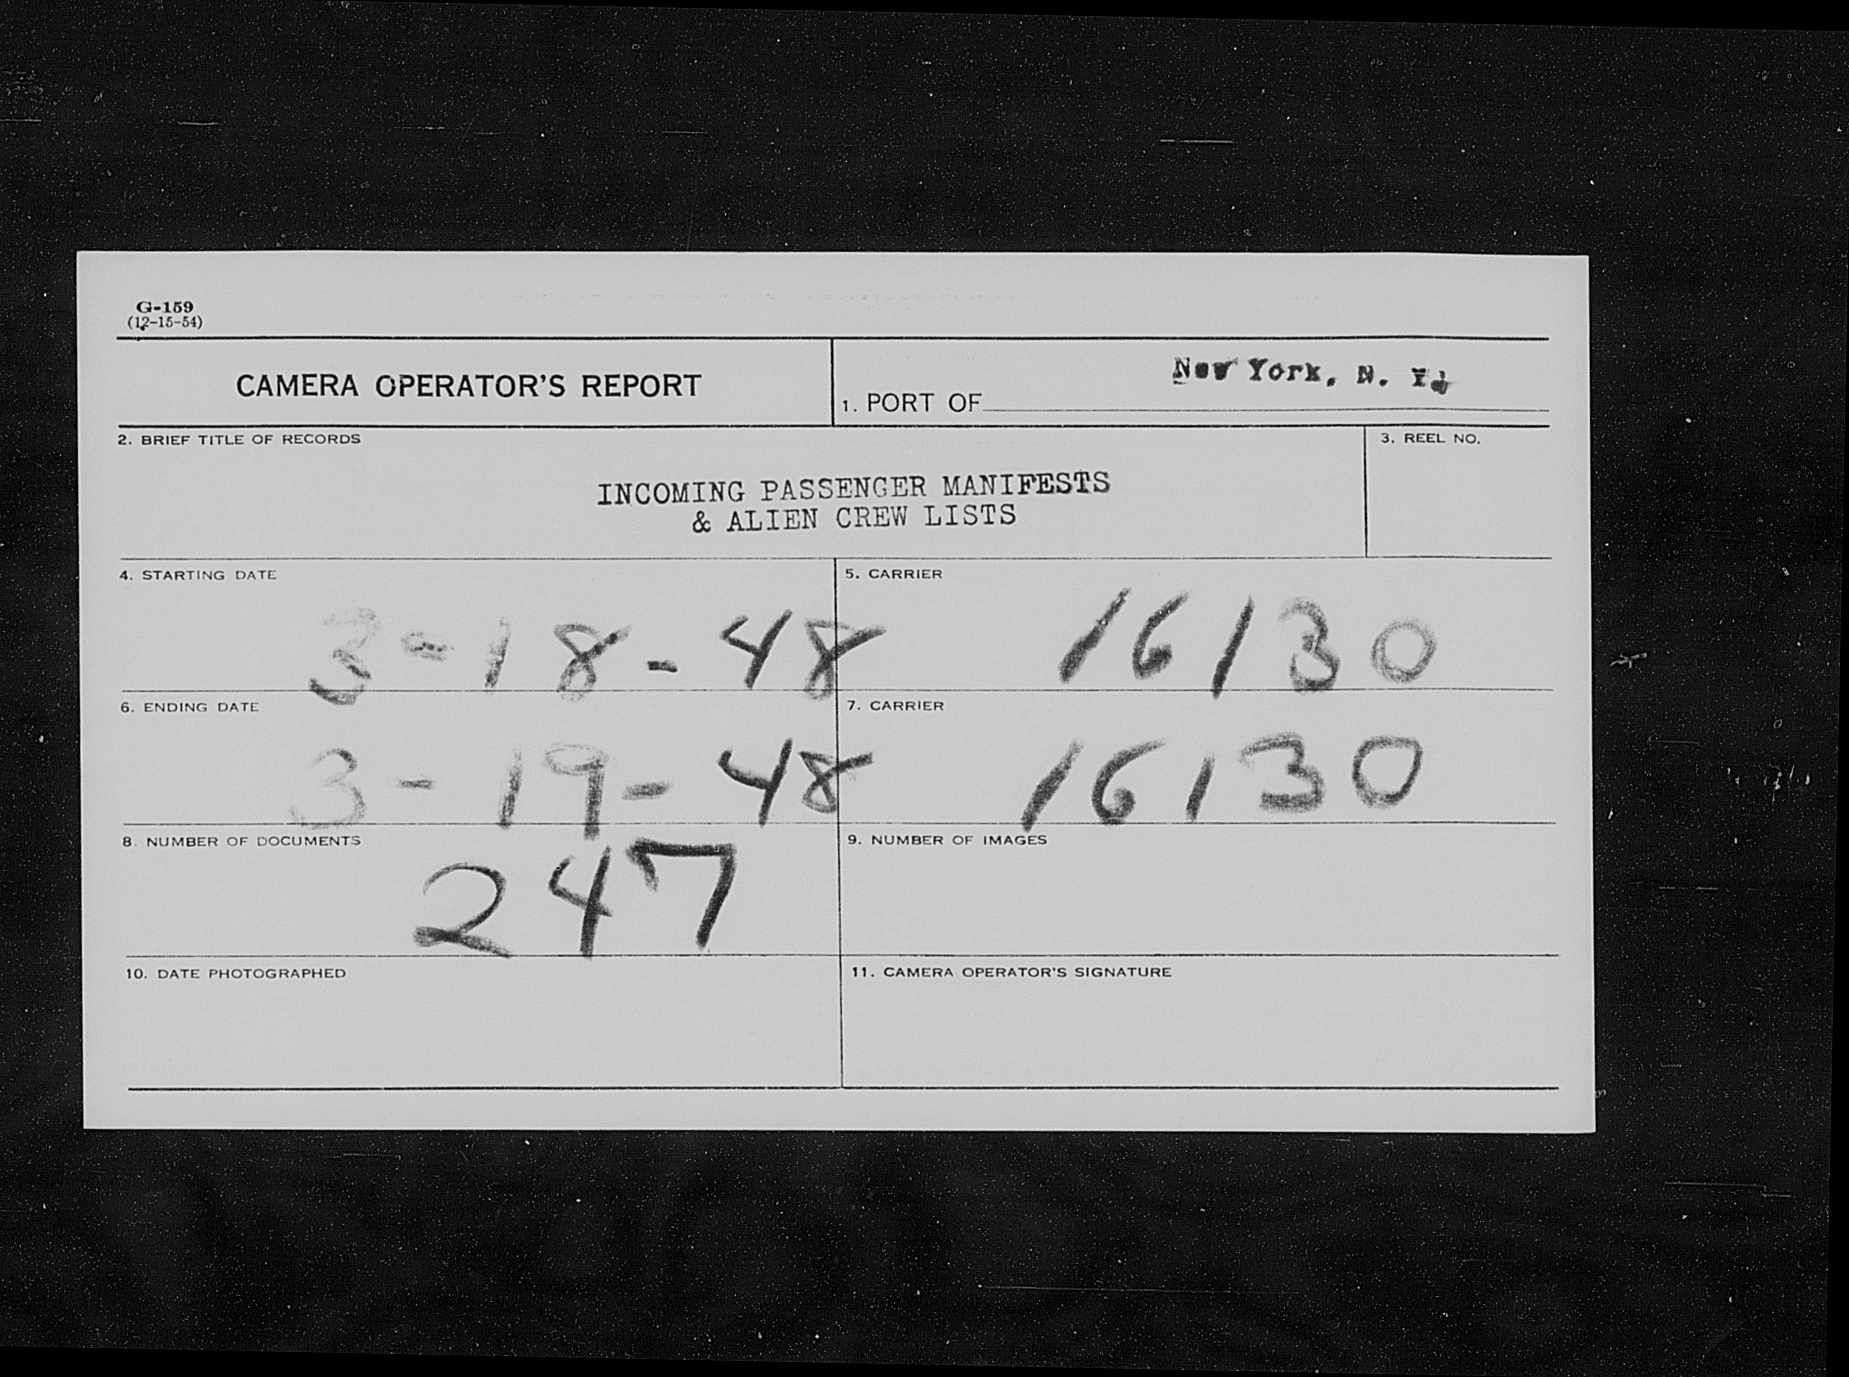 G-159
(12-15-54)
CAMERA OPERATOR'S REPORT
1. PORT OF New York, N. Y.
2. BRIEF TITLE OF RECORDS
INCOMING PASSENGER MANIFESTS
& ALIEN CREW LISTS
3. REEL NO.
4. STARTING DATE
3-18-48
5. CARRIER
16130
6. ENDING DATE
3-19-48
7. CARRIER
16130
8. NUMBER OF DOCUMENTS
247
9. NUMBER OF IMAGES
10. DATE PHOTOGRAPHED
11. CAMERA OPERATOR'S SIGNATURE